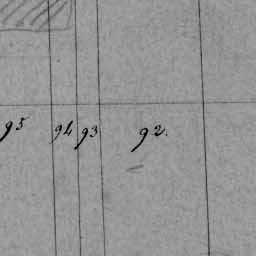 95 94 93 92.